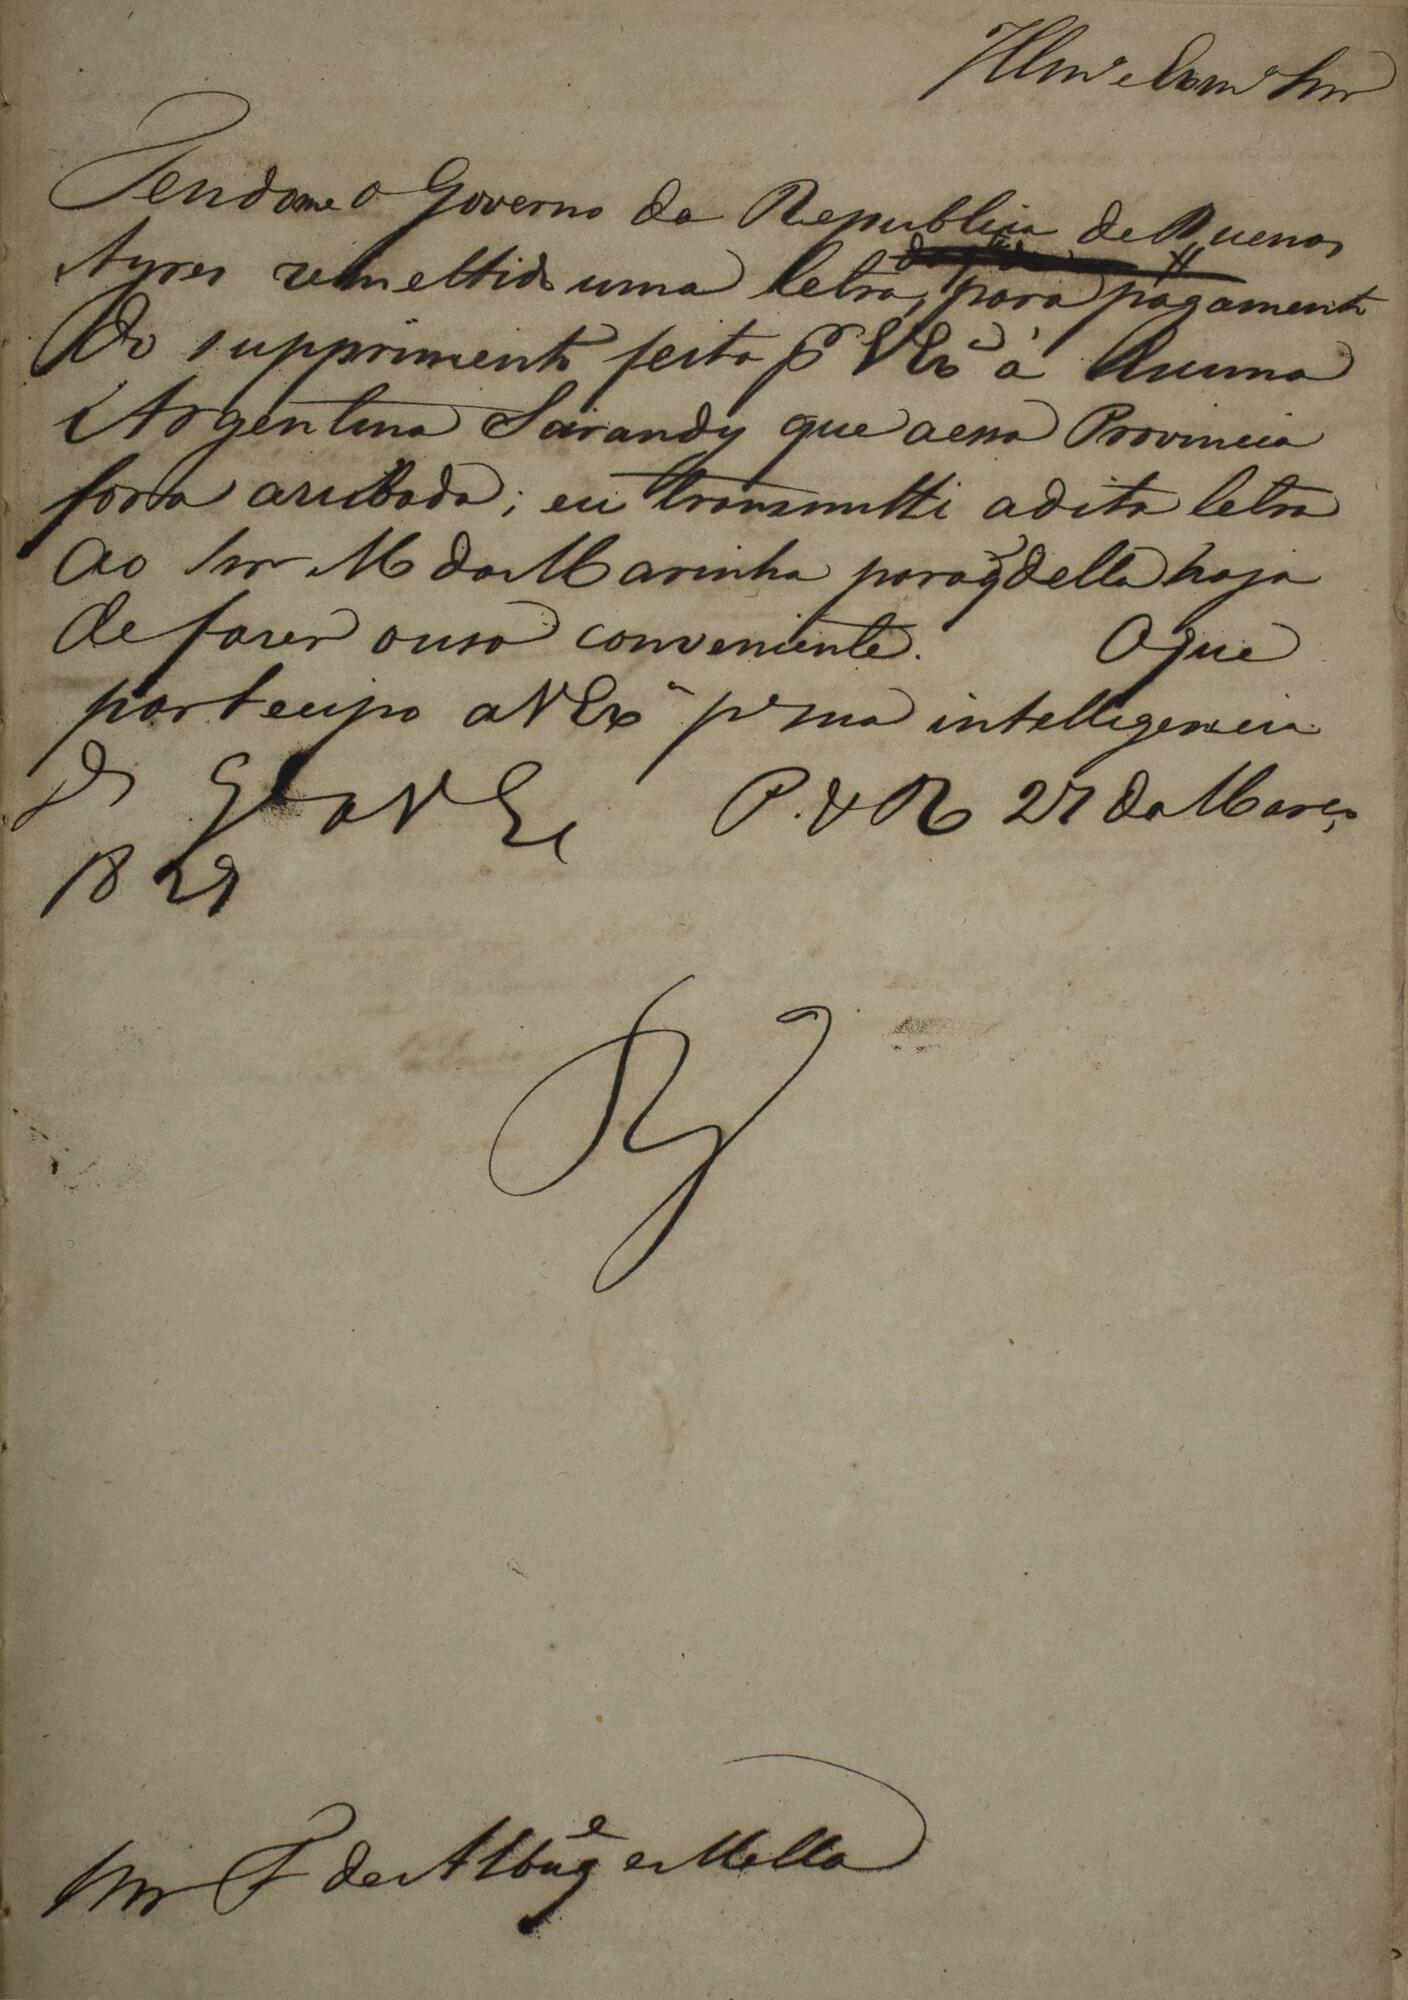 Illmº e Exmº Snr
Tendome o Governo da Republica de Buenos
Ayres remettido uma letra, para pagamento
do supprimento feito pr VExª á Escuna
Argentina Sarandy que a essa Provincia
fora arribada; eu transmitti a dita letra
ao Snr M da Marinha para q̃ della haja
de fazer o uso conveniente. O que
partecipo a VExª pª sua intelligencia
Ds Ge a V Ex P. do RJ 27 de Março
1829
Snr F de Albuqe e Mello